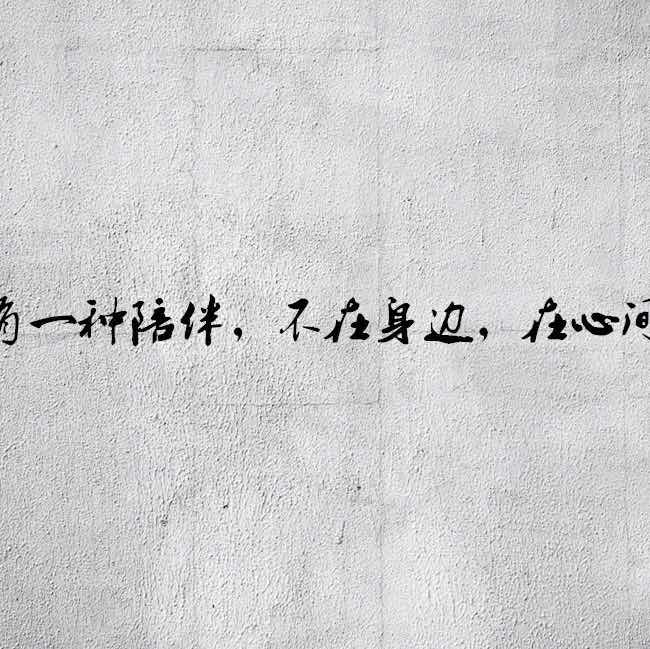 有一种陪伴，不在身边，在心间